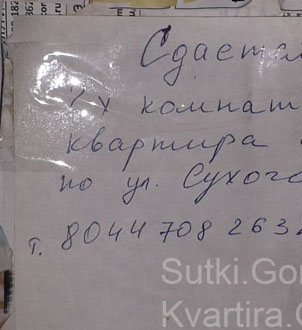 Сдаетс
х комнат
квартира
по ул. Сухо
т. 8044 708 263
Sutki.Go
Kvartira.